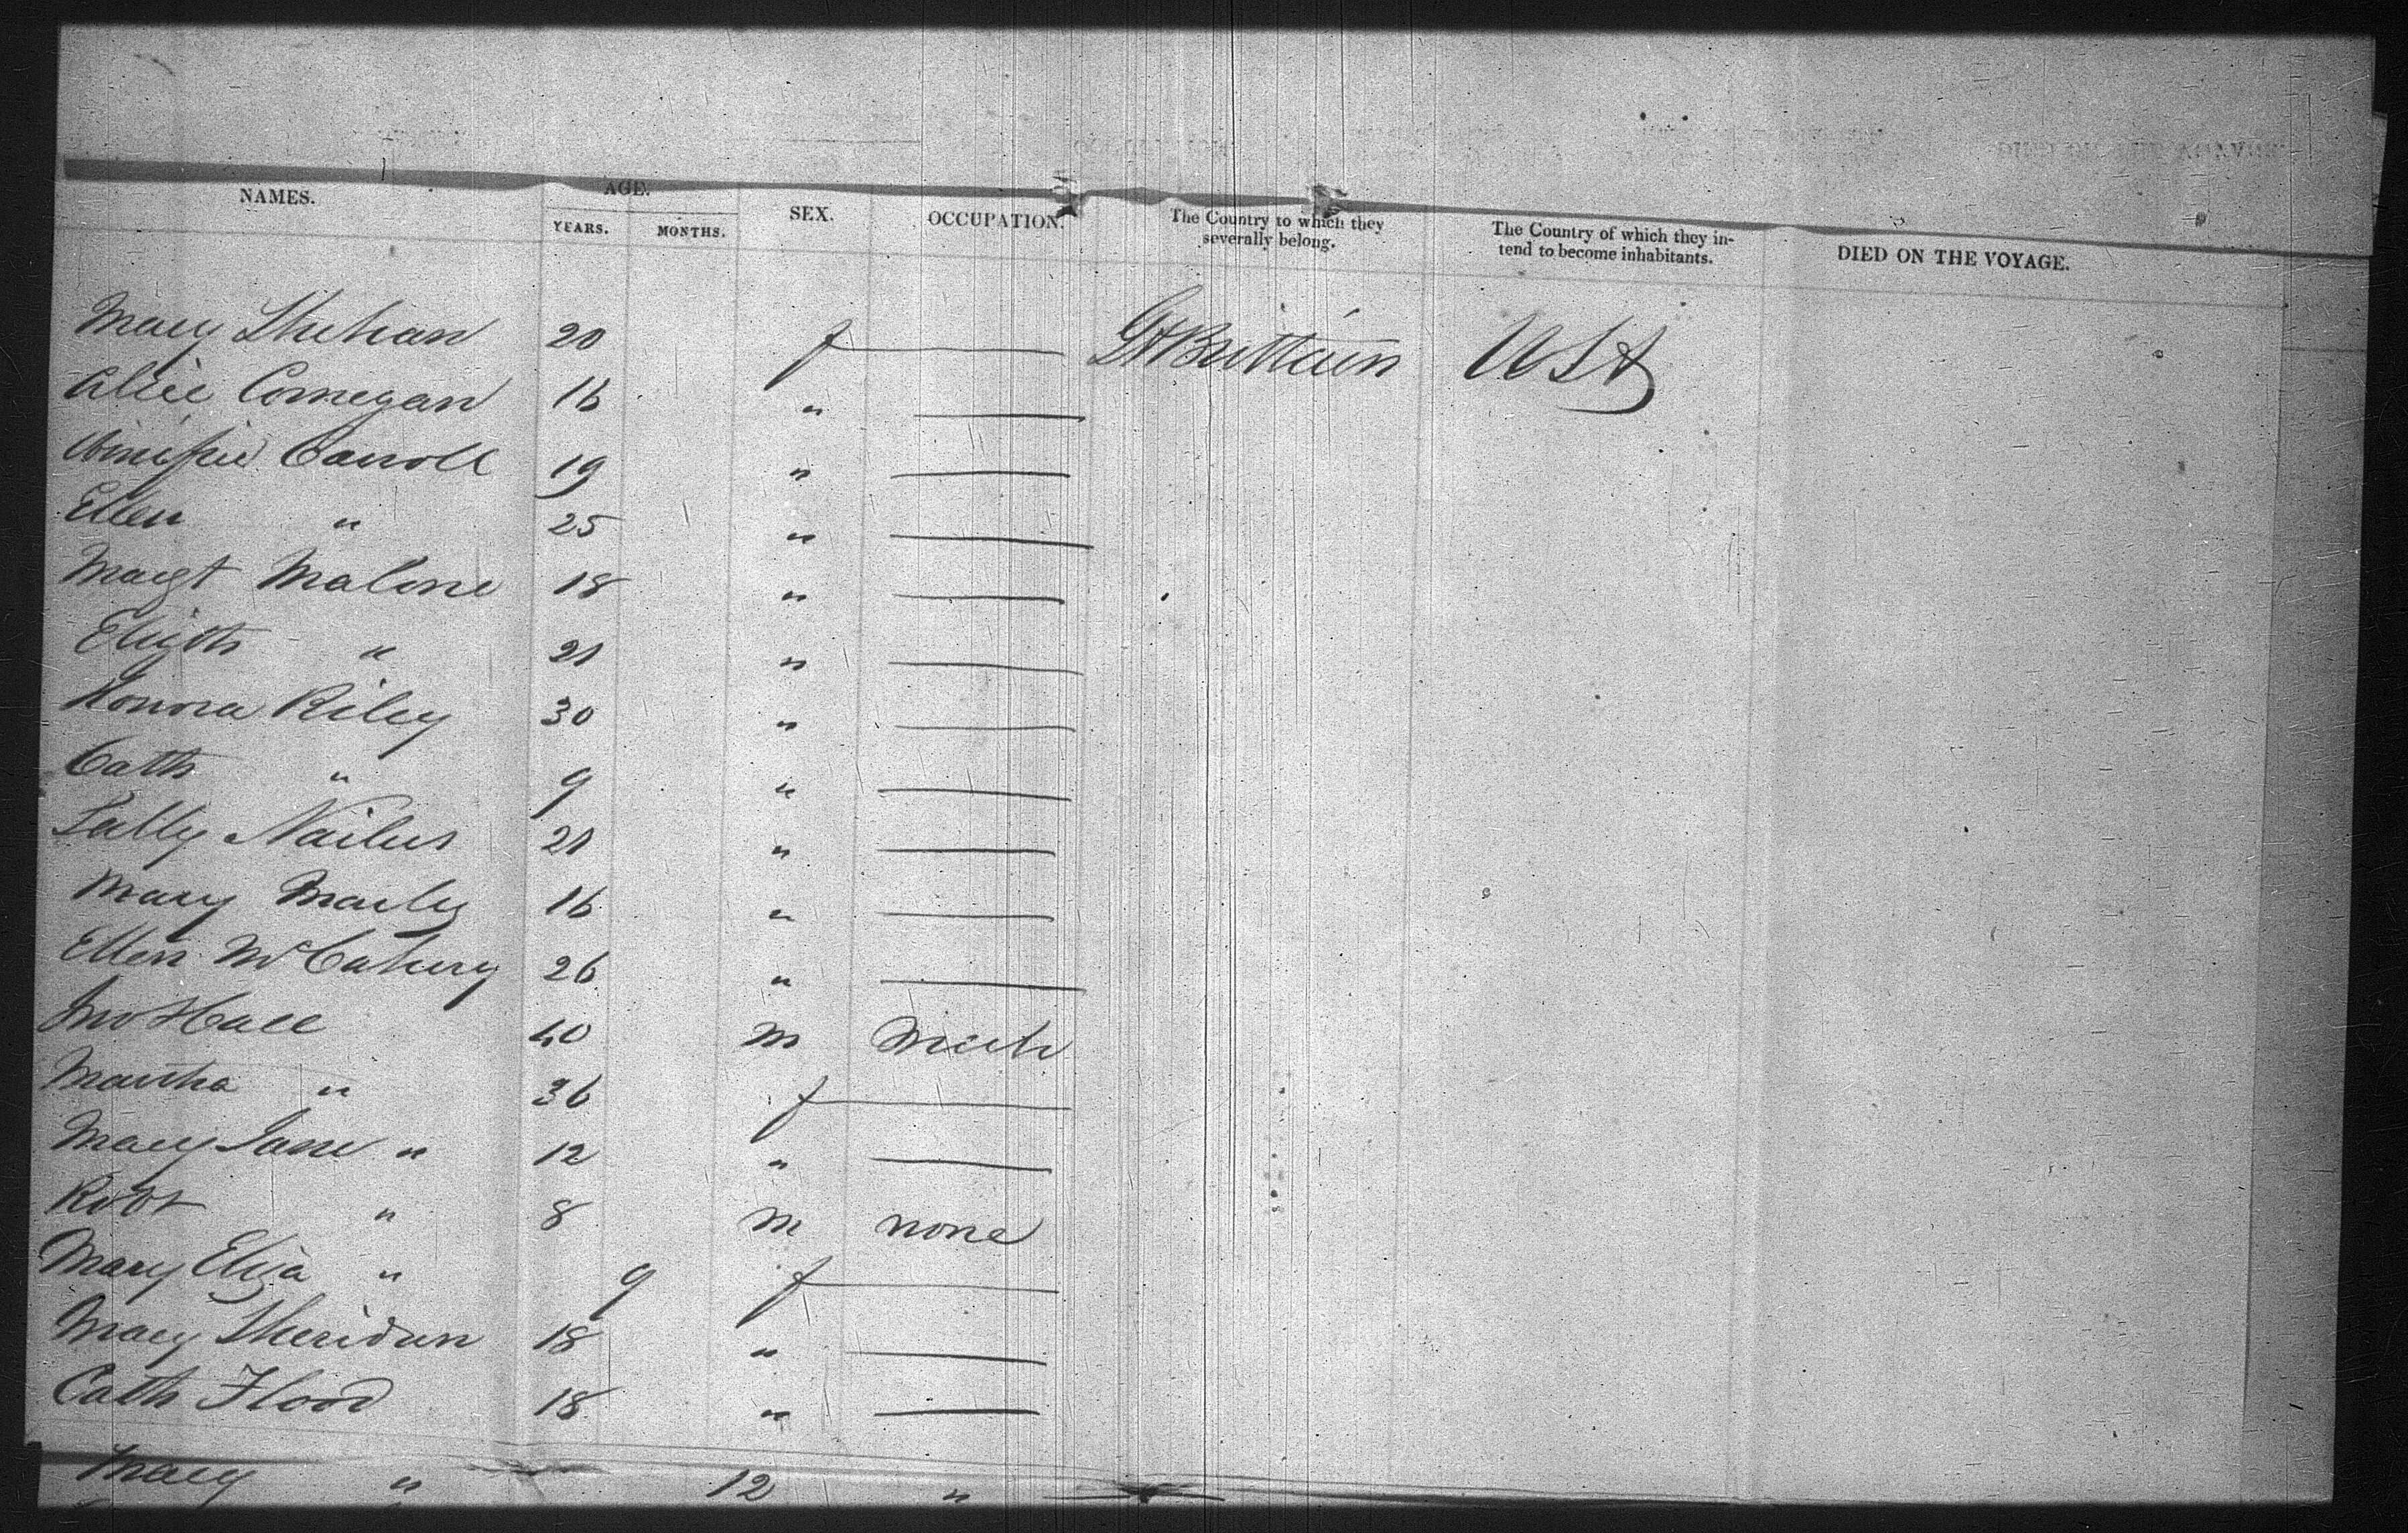 NAMES. AGE. SEX. OCCUPATION. The Country to which they severally belong. The Country of which they in-tend to become inhabitants. DIED ON THE VOYAGE.
YEARS. MONTHS.
Mary Shehan 20 f — Gt Brittain USA
Alice Cornegan 16 " —
Carroll 19 " —
Ellen " 25 " —
Margt Malone 18 " —
Elizth " 21 " —
Honora Riley 30 " —
Cath " 9 " —
Sally 21 " —
Mary 16 " —
Ellen McCahery 26 " —
Jno Hall 40 m Mech
Martha " 36 f —
Mary Jane " 12 " —
Robt " 8 m none
Mary Eliza " 9 f —
Mary Sheridan 18 " —
Cath Flood 18 " —
Mary " 12 " —